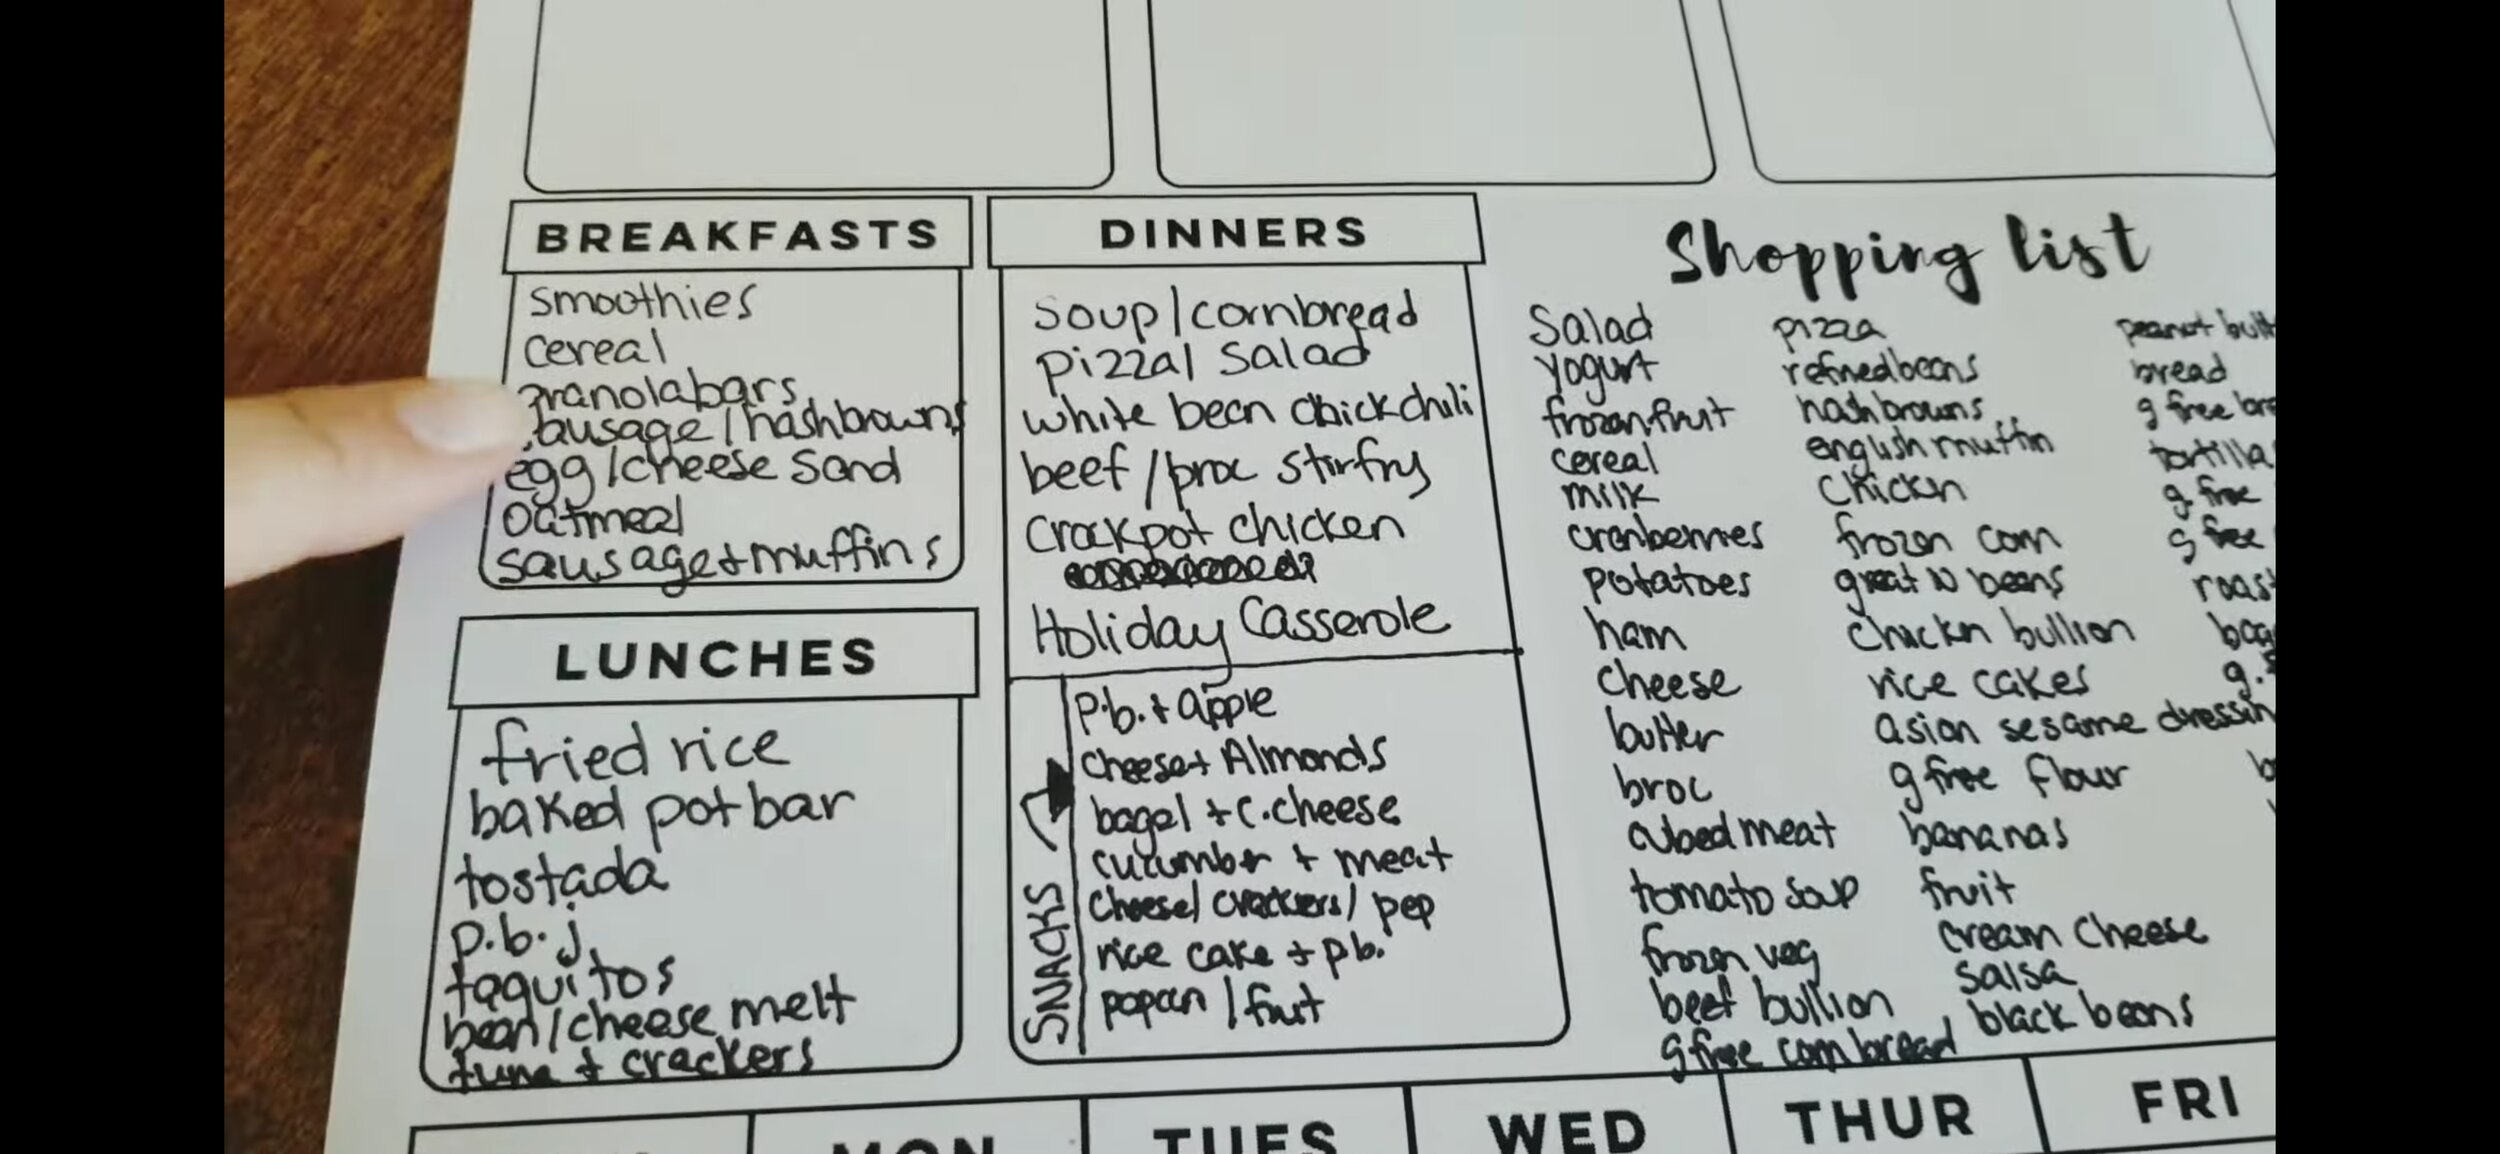 BREAKFASTS
smoothies
cereal
granola bars
sausage / hashbrowns
egg / cheese sand
oatmeal
sausage + muffins
LUNCHES
fried rice
baked pot bar
tostada
p.b.j.
taquitos
bean / cheese melt
tuna + crackers
DINNERS
soup / cornbread
pizza / salad
white bean chick chili
beef / broc stirfry
crockpot chicken
Holiday Casserole
SNACKS
p.b. + apple
cheese + Almonds
bagel + c. cheese
cucumber + meat
cheese / crackers / pep
rice cake + p.b.
popcorn / fruit
Shopping list
Salad
yogurt
frozen fruit
cereal
milk
cranberries
potatoes
ham
cheese
butter
broc
cubed meat
tomato soup
frozen veg
beef bullion
g free cornbread
pizza
refinedbeans
hashbrowns
english muffin
chickn
frozen corn
great N beans
chickn bullion
rice cakes
asian sesame dressin
g free flour
bananas
fruit
cream cheese
salsa
black beans
peanut butt
bread
g free bre
tortilla
g free
g free
roast
bag
g.
b
MON
TUES
WED
THUR
FRI